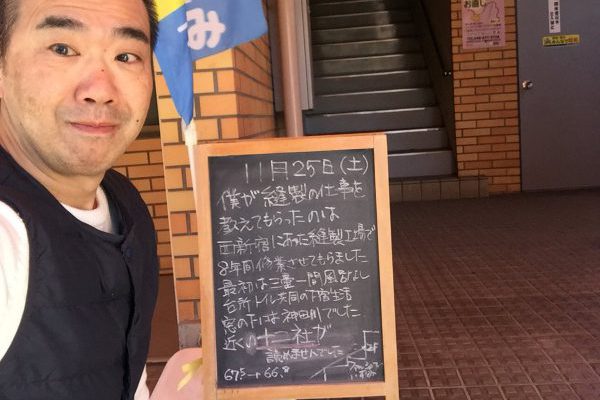 み
お直し
11月25日(土)
僕が縫製の仕事を
教えてもらったのは
西新宿にあった縫製工場で
8年間修業させてもらました
最初は三畳一間風呂なし
台所トイレ共同の下宿生活
窓の下には神田川でした
近くの十二社が
読めませんでした
67.5→66.8
2F